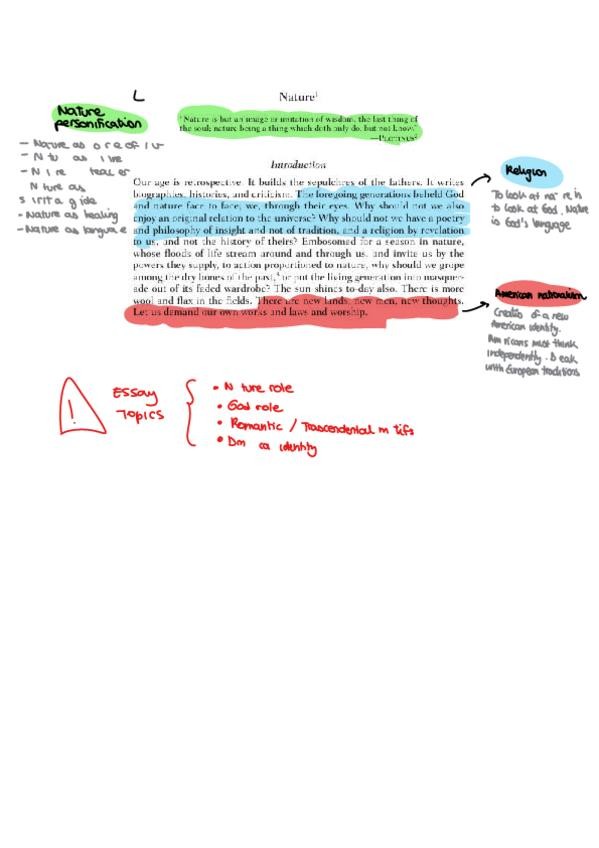 L
Nature¹
Nature
personification
"Nature is but an image or imitation of wisdom, the last thing of
the soul; nature being a thing which doth only do, but not know."
—PLOTINUS²
- Nature as
- N tu as
- N
N ture as
- Nature as healing
- Nature as
Introduction
Our age is retrospective. It builds the sepulchres of the fathers. It writes
biographies, histories, and criticism. The foregoing generations beheld God
and nature face to face; we, through their eyes. Why should not we also
enjoy an original relation to the universe? Why should not we have a poetry
and philosophy of insight and not of tradition, and a religion by revelation
to us, and not the history of theirs? Embosomed for a season in nature,
whose floods of life stream around and through us, and invite us by the
powers they supply, to action proportioned to nature, why should we grope
among the dry bones of the past,⁴ or put the living generation into masquer-
ade out of its faded wardrobe? The sun shines to-day also. There is more
wool and flax in the fields. There are new lands, new men, new thoughts.
Let us demand our own works and laws and worship.
Religion
To look at na re is
to look at God, Nature
is God's language
American nationalism
of a new
American identity.
Am ricans must think
independently. B eak
with European traditions
!
ESSAY
TOPICS
• N ture role
• God role
• Romantic / Trascendental m tifs
• identity